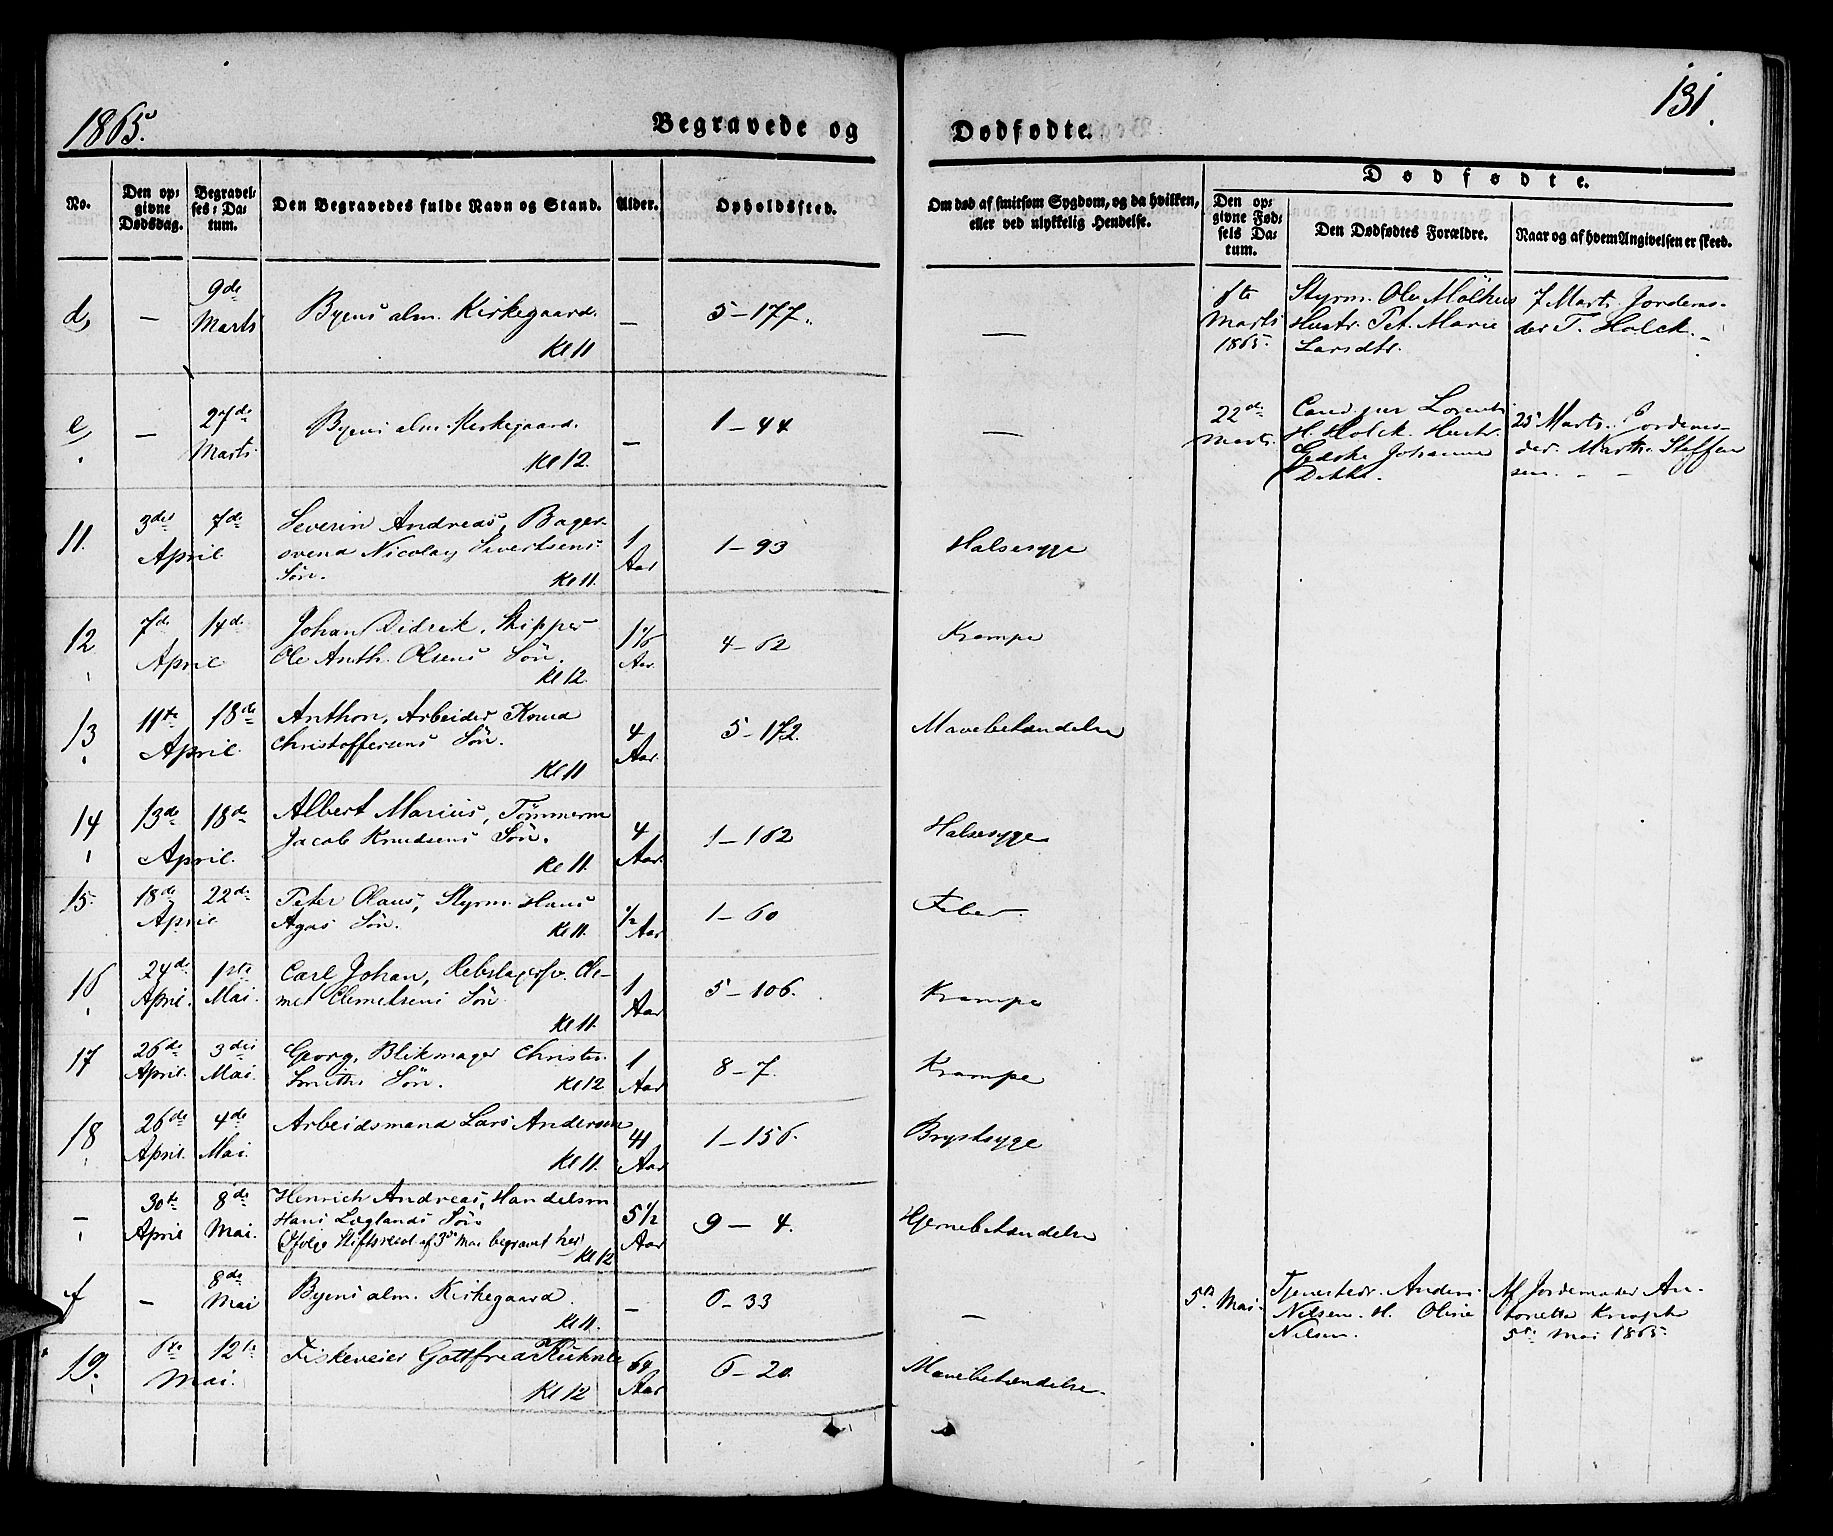 1865.
Begravede og
Dødfødte.
131.
No.
Den opgivne Dødsdag.
Begravelses-Datum.
Den Begravedes fulde Navn og Stand.
Alder.
Opholdssted.
Om død af smitsom Sygdom, og da hvilken, eller ved ulykkelig Hendelse.
Dødfødte.
Den opgivne Fødsels Datum.
Den Dødfødtes Forældre.
Naar og af hvem Angivelsen er skeed.
d, — 9de Marts
Byens alm. Kirkegaard.
Kl 11
— 5-177. —
Marts 1865.
Styrm. Ole
Hustr. Pet. Marie
Larsdtr.
7 Marts. Jordemo-
der T. Holck.
e, — 27de Marts.
Byens alm. Kirkegaard.
Kl 12.
— 1-44 —
22de Marts.
Cand. jur Lorents
H. Holck. Hustr.
Johanne
Dekke.
25 Marts. Jordemo-
der. Marth. Steffen
sen.
11. 3die 7de April
Severin Andreas, Bager-
svend Nicolay Sivertsens
Søn.
Kl 11.
1 Aar
1-93
Halsesyge
12 7de 14de April
Johan Didrik, Skipper
Ole Anth. Olsens Søn.
Kl 12.
Aar.
4-62
Krampe
13 11te 18de April.
Anthon, Arbeider Knud
Christoffersens Søn.
Kl 11
4 Aar.
5-172.
Mavebetændelse
14 13de 18de April.
Albert Marius, Tømmerm
Jacob Knudsens Søn.
Kl 11.
4 Aar.
1-162
Halsesyge
15. 18de 22de April
Peter Olaus, Styrm Hans
Agas Søn.
Kl 11.
1/2 Aar
1-60
Feber.
16 24de April. 1ste Mai.
Carl Johan, Rebslagersv. Cle-
met Clemetsens Søn.
Kl 11.
1 Aar
5-106.
Krampe
17 26de April. 3die Mai.
Georg, Blikmager Christ.
Smiths Søn.
Kl 12
1 Aar
8-7.
Krampe
18 26de April. 4de Mai.
Arbeidsmand Lars Andersen
Kl 11.
41 Aar
1-156.
Brystsyge
— 30te April 8de Mai.
Henrich Andreas, Handelsm
Hans Løglands Søn
Ifølge Stiftsresol. af 3die Mai begravet her
Kl 12
5 1/2 Aar
9-4.
Hjernebetændelse
f — 8de Mai
Byens alm. Kirkegaard.
Kl 11.
— 6-33 —
5te Mai.
Tjenestedr. Anders
Nilsen. H. Oline
Nilsen.
Af Jordemoder An-
tonette
5te Mai 1865.
19. 6te 12te Mai.
Fiskeveier Gottfried Kühnle
Kl 12
64 Aar
6-20.
Mavebetændelse.